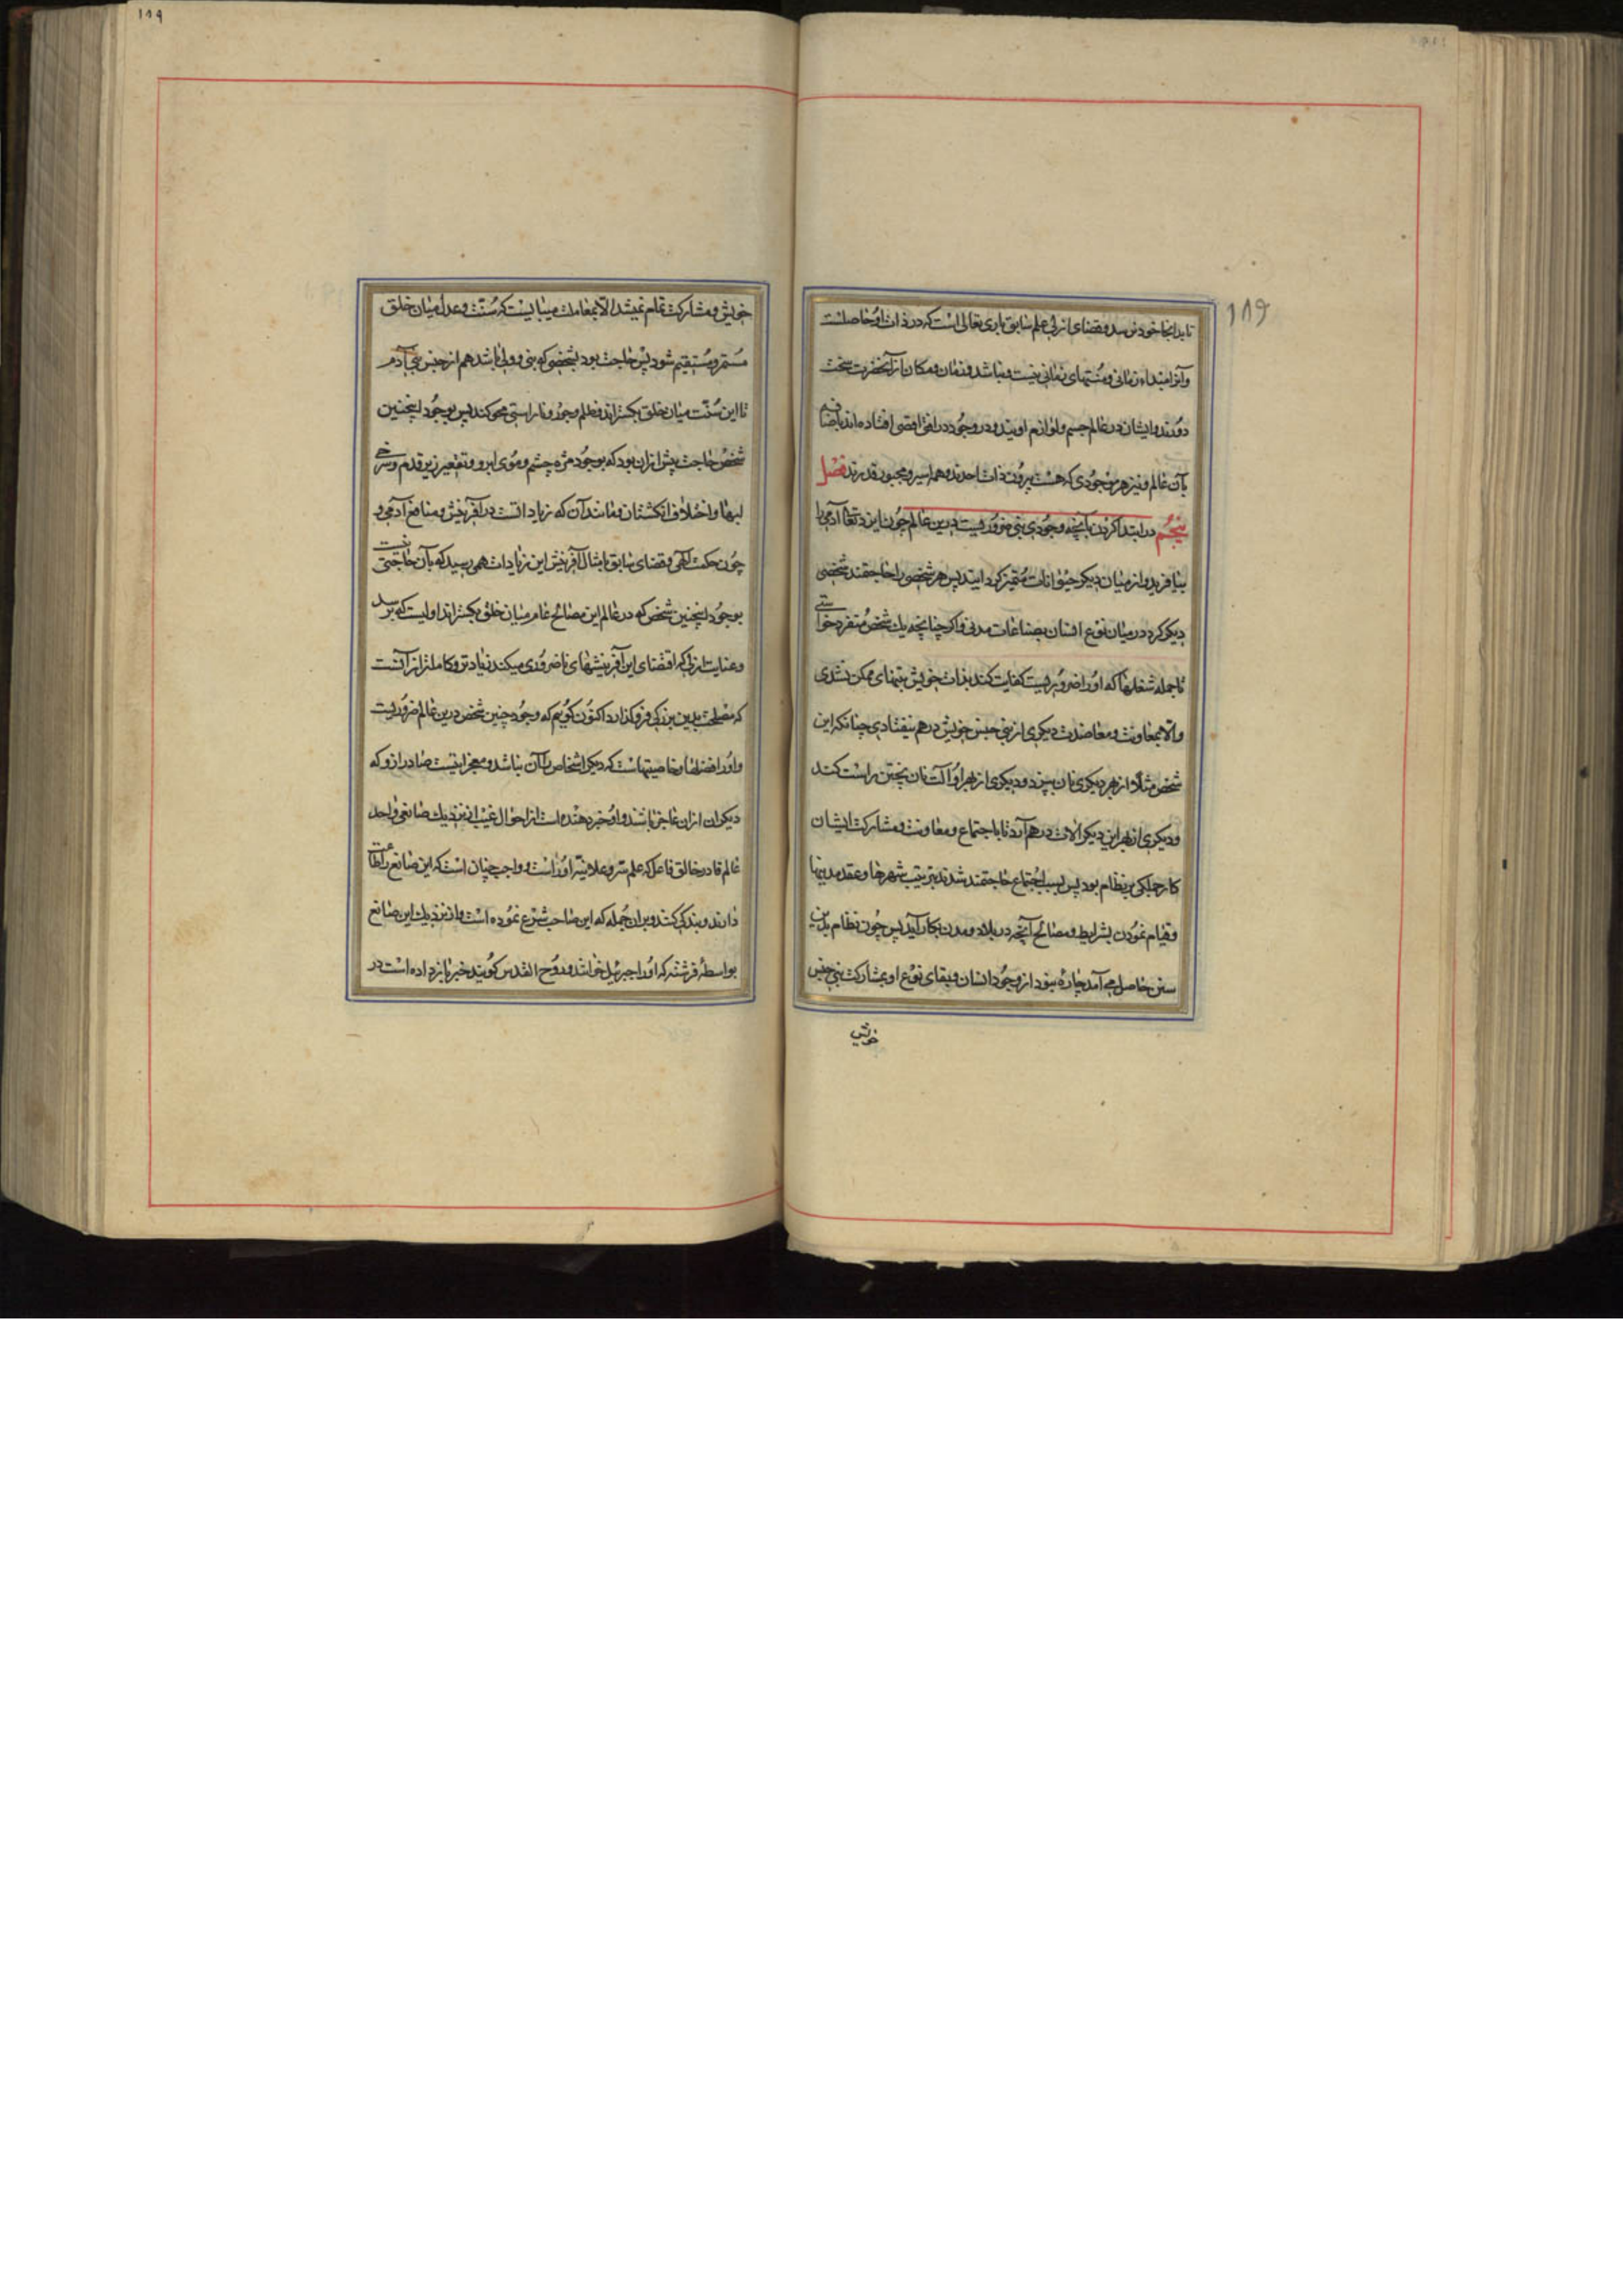 ۱۸۹
تا بدانجا خود نرسد و قضای ازلی علم سابق باری تعالی است که در ذات او حاصلست
و آنرا ابتداء زمانی و منتهای زمانی نیست و نباشد و زمان و مکان از آنحضرت سخت
دورند و ایشان در عالم جسم و لوازم اویند و در وجود در افق اقصی افتاده‌اند باضافه
بآن عالم و نیز هر موجودی که هست بیرون ذات احدند و همه اسیر و مجبور قدرند فصل
پنجم در ابتدا کردن بآنچه وجود نبی ضروریست درین عالم چون ایزد تعالی آدمی را
بیافرید و از میان دیگر حیوانات متمیز گردانید پس هر شخصی را حاجتمند شخصی
دیگر کرد در میان نوع انسان بصناعات مدنی و اگر چنانچه یک شخص متفرد خواستی
تا جمله شغلها که او را ضروریست کفایت کند بذات خویش بتنهای ممکن نشدی
والا بمعاونت و معاضدت دیگری از بنی جنس خویش درهم نیفتادی چنانکه این
شخص مثلا از بهر دیگری نان بپزد و دیگری از بهر او آلت نان پختن راست کند
و دیگری از بهر این دیگر آلات درهم آرد تا باجتماع و معاونت و مشارکت ایشان
کار جملگی بر نظام بود پس بسبب اجتماع حاجتمند شدند بترتیب شهرها و عقد مدینها
و قیام نمودن بشرایط و مصالح آنچه در بلاد و مدن بکار آید پس چون نظام بدین
سنن حاصل می‌آمد چاره نبود از وجود انسان و بقای نوع او بمشارکت بنی جنس
خویش
۱۸۹
خویش و مشارکت تمام نمیشد الا بمعاملت میبایست که سنت و عدل میان خلق
مستمر و مستقیم شود پس حاجت بود بشخصی که نبی و ولی باشد هم از جنس بنی آدم
تا این سنت میان خلق بگستراند و ظلم و جور و ناراستی محو کند پس بوجود اینچنین
شخص حاجت بیش از ان بود که بوجود مژه چشم و موی ابرو و تقعیر زیر قدم و سرخی
لبها و اختلاف انگشتان و مانند آن که زیادات است در آفرینش و منافع آدمی و
چون حکمت الهی و قضای سابق بامثال آفرینش این زیادات همی رسید که بآن حاجتی نیست
بوجود اینچنین شخص که در عالم این مصالح عام میان خلق بگستراند اولیست که برسد
و عنایت ازلی که اقتضای این آفرینشهای ناضروری میکند زیادتر و کاملتر از آنست
که مصلحت بدین بزرگی فروگذارد اکنون گوئیم که وجود چنین شخص درین عالم ضروریست
و او را فضلها و خاصیتهاست که دیگر اشخاص را آن نباشد و معجزاتیست صادر ازو که
دیگران از ان عاجز باشند و او خبر دهنده است از احوال غیب از نزدیک صانعی واحد
عالم قادر خالق فاعل که علم سر و علانیه او راست و واجب چنان است که این صانع را طاعت
دارند و بندگی کنند و بران جمله که این صاحب شرع نموده است و از نزدیک این صانع
بواسطهٔ فرشته که او را جبرئیل خوانند و روح القدس گویند خبر باز داده است در